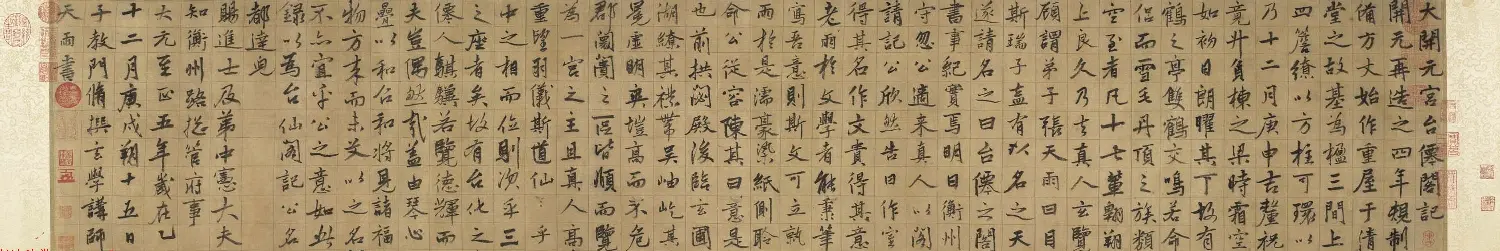 大開元宮台僊閣記
開元再造之四年規制
備方丈始作重屋于清
堂之故基為楹三間上
四簷繚以方柱可環以
乃十二月庚申吉釐祝
竟升負棟之梁時霜空
如初日朗曜其下有
鶴之亭雙鶴交鳴若命
侶而雪毛丹頂之族類
空至者凡十七輩翱翔
上良久乃去真人玄覽
顧謂弟子張天雨曰目
斯瑞子盍有以名之天
遂請名之曰台僊閣之
書事紀實焉明日衡州
守忽公適来真人以閣
請記公欣然告曰作室
得其名作文貴得其意
老雨於文學者能秉筆
寫吾意則斯文可立孰
而於是濡豪染紙側聆
命公從容陳其曰意是
也前拱閣殿後臨玄圃
湖繚其襟帶吳岫屹其
晃虛明爽塏高而不危
郡闤闠之區皆順而覽
為一宮之主且真人高
重望羽儀斯道仙 乎
中之相而位則次乎三
之座者矣故有台化之
僊人騏驥若覽德輝而
夫豈偶然哉蓋由琴心
疊以和召和將見諸福
物方来而未艾以之名
不亦宜乎公之意如此
錄以為台仙閣記公名
都達
賜進士及弟中憲大夫
知衡州路總管府事
大元至正五年歲在乙
十二月庚戌朔十五日
子教門脩撰玄學講師
天雨書